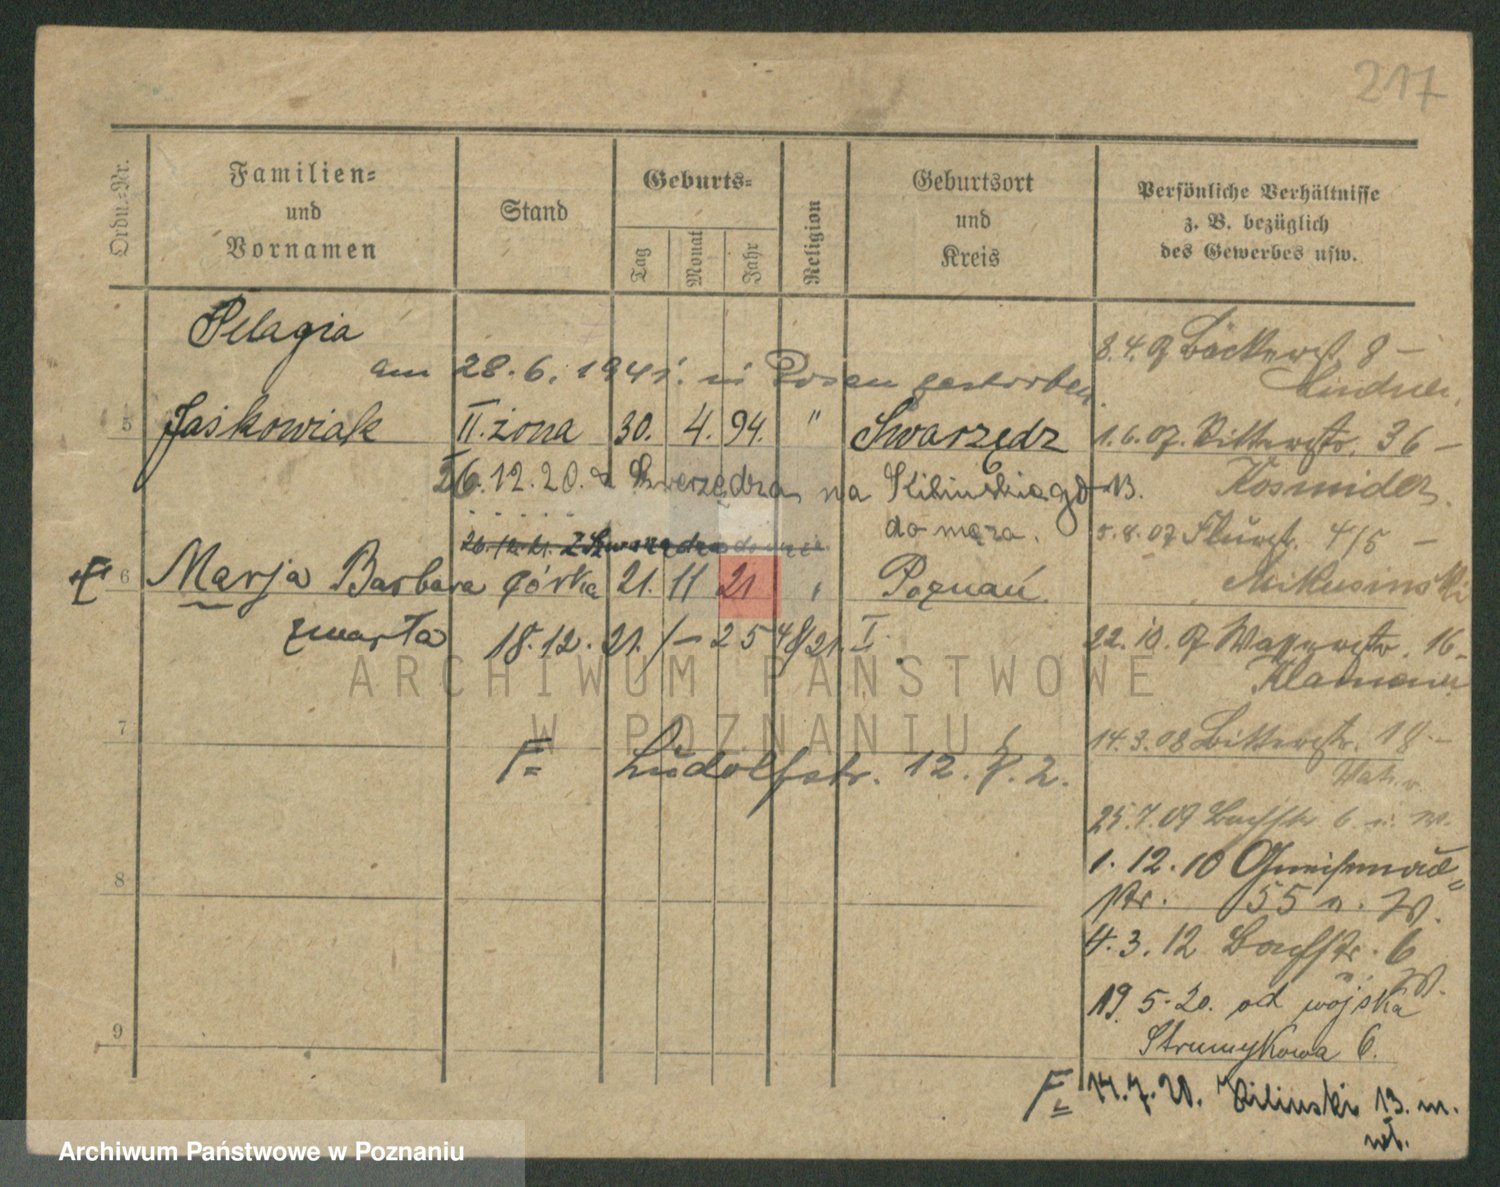 217
Ordn.-Nr.
Familien-
und
Vornamen
Stand
Geburts-
Tag
Monat
Jahr
Religion
Geburtsort
und
Kreis
Persönliche Verhältnisse
z. B. bezüglich
des Gewerbes usw.
Pelagia
am 28.6.1941. in Posen gestorben
5 Jaśkowiak II. żona 30. 4. 94. " Swarzędz
26.12.20. z Swarzędza na Kilińskiego 13.
do męża.
6 Marja Barbara córka 21. 11 21 " Poznań
zmarła 18.12.21. I.
7
F= Ludolfstr. 12. 2.
8
9
8.4.07 Bäckerst. 8 –
Lindner.
1.6.07. Ritterstr. 36 –
Kosmider.
5.8.07 4/5 –
Mikusinski
22.10.07 16 –
14.3.08 Ritterstr. 18. –
25.7.09 Bachstr. 6 n. W.
1.12.10 Gneisenau=
str. 55 n. W.
4.3.12 Bachstr. 6
n. W.
19.5.20. od wojska
Strumykowa 6.
F= 14.7.20. Kiliński 13. m.
wł.
ARCHIWUM PAŃSTWOWE
W POZNANIU
Archiwum Państwowe w Poznaniu